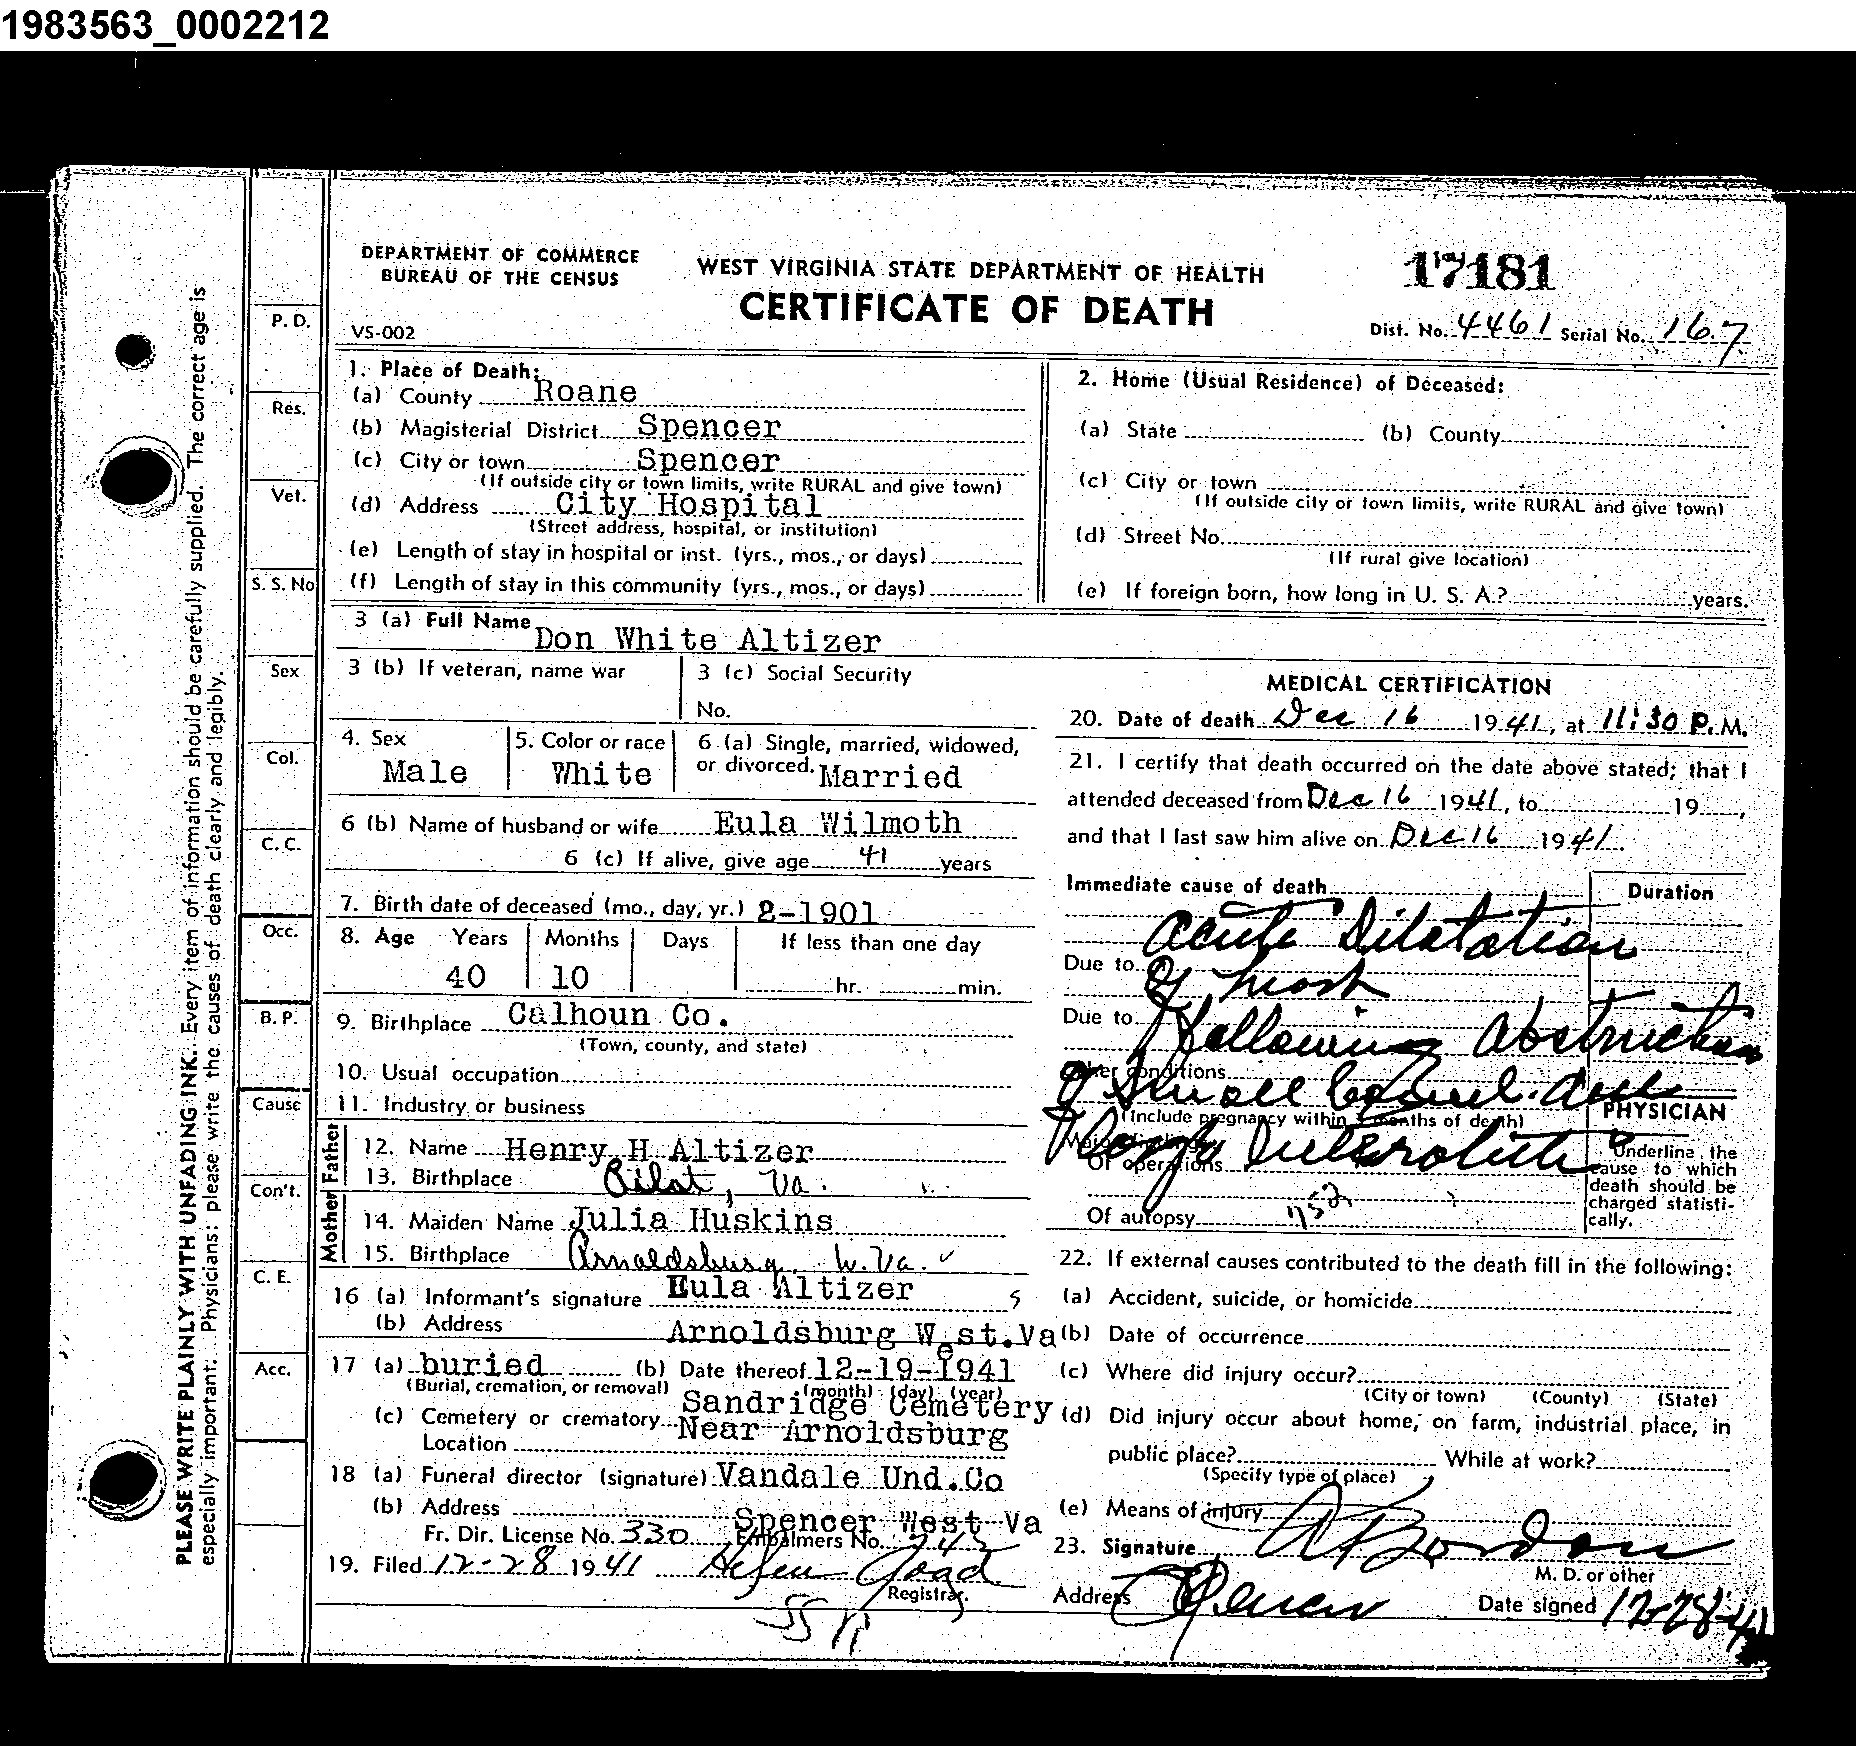 1983563_0002212
DEPARTMENT OF COMMERCE
BUREAU OF THE CENSUS
WEST VIRGINIA STATE DEPARTMENT OF HEALTH
CERTIFICATE OF DEATH
17181
VS-002
Dist. No. 4461 Serial No. 167
PLEASE WRITE PLAINLY WITH UNFADING INK. Every item of information should be carefully supplied. The correct age is
especially important. Physicians: please write the causes of death clearly and legibly.
P. D.
Res.
Vet.
S. S. No
Sex
Col.
C. C.
Occ.
B. P.
Cause
Con't.
C. E.
Acc.
1. Place of Death:
(a) County Roane
(b) Magisterial District Spencer
(c) City or town Spencer
(If outside city or town limits, write RURAL and give town)
(d) Address City Hospital
(Street address, hospital, or institution)
(e) Length of stay in hospital or inst. (yrs., mos., or days)
(f) Length of stay in this community (yrs., mos., or days)
2. Home (Usual Residence) of Deceased:
(a) State (b) County
(c) City or town
(If outside city or town limits, write RURAL and give town)
(d) Street No.
(If rural give location)
(e) If foreign born, how long in U. S. A.? years.
3 (a) Full Name Don White Altizer
3 (b) If veteran, name war
3 (c) Social Security
No.
4. Sex
Male
5. Color or race
White
6 (a) Single, married, widowed,
or divorced. Married
6 (b) Name of husband or wife Eula Wilmoth
6 (c) If alive, give age 41 years
7. Birth date of deceased (mo., day, yr.) 2-1901
8. Age Years Months Days If less than one day
40 10 hr. min.
9. Birthplace Calhoun Co.
(Town, county, and state)
10. Usual occupation
11. Industry or business
Father
12. Name Henry H Altizer
13. Birthplace Pilot, Va.
Mother
14. Maiden Name Julia Huskins
15. Birthplace Arnoldsburg, W. Va.
16 (a) Informant's signature Eula Altizer
(b) Address Arnoldsburg West.Va
17 (a) buried (b) Date thereof 12-19-1941
(Burial, cremation, or removal) (month) (day) (year)
(c) Cemetery or crematory Sandridge Cemetery
Location Near Arnoldsburg
18 (a) Funeral director (signature) Vandale Und.Co
(b) Address Spencer West Va
Fr. Dir. License No. 330 Embalmers No.
19. Filed 12-28 1941 Helen Goad
Registrar.
MEDICAL CERTIFICATION
20. Date of death Dec 16 1941, at 11:30 P.M.
21. I certify that death occurred on the date above stated; that I
attended deceased from Dec 16 1941, to 19 ,
and that I last saw him alive on Dec 16 1941.
Immediate cause of death
Duration
acute Dilatation
Due to of heart
Due to following obstruction
Other conditions of small bowel.
(Include pregnancy within 3 months of death)
PHYSICIAN
Of operations
Of autopsy
Underline the
cause to which
death should be
charged statisti-
cally.
22. If external causes contributed to the death fill in the following:
(a) Accident, suicide, or homicide
(b) Date of occurrence
(c) Where did injury occur?
(City or town) (County) (State)
(d) Did injury occur about home, on farm, industrial place, in
public place? While at work?
(Specify type of place)
(e) Means of injury
23. Signature
M. D. or other
Address Spencer Date signed 12-28-41